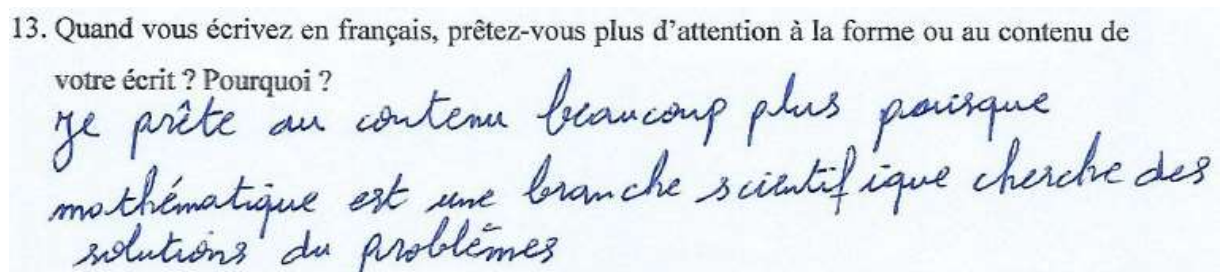 13. Quand vous écrivez en français, prêtez-vous plus d'attention à la forme ou au contenu de
votre écrit ? Pourquoi ?
Je prête au contenu beaucoup plus pouisque
mathématique est une branche scientifique cherche des
solutions du problèmes